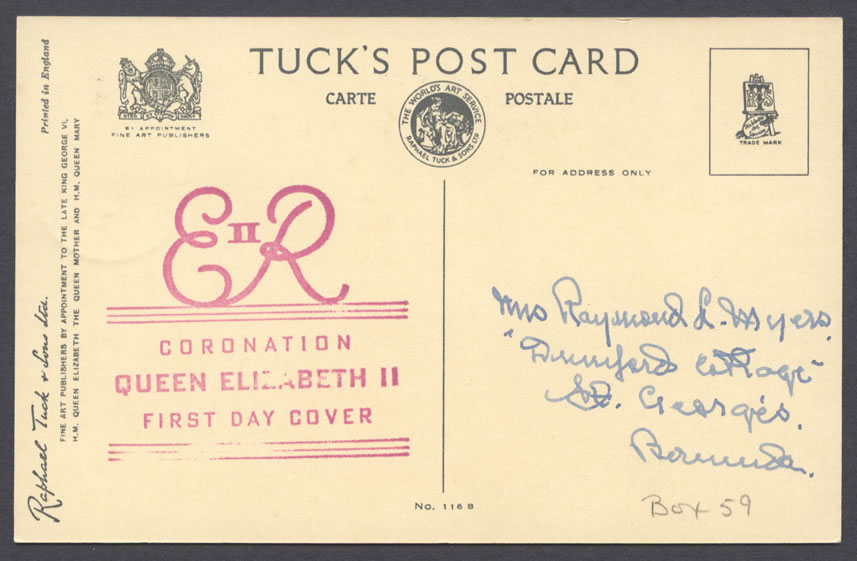 TUCK'S POST CARD
CARTE POSTALE
THE WORLD'S ART SERVICE
RAPHAEL TUCK & SONS LTD
BY APPOINTMENT
FINE ART PUBLISHERS
TRADE MARK
FOR ADDRESS ONLY
Printed in England
Raphael Tuck & Sons Ltd.
FINE ART PUBLISHERS BY APPOINTMENT TO THE LATE KING GEORGE VI,
H.M. QUEEN ELIZABETH THE QUEEN MOTHER AND H.M. QUEEN MARY
E II R
CORONATION
QUEEN ELIZABETH II
FIRST DAY COVER
Mrs Raymond L. Myers.
Cottage"
St. Georges.
Bermuda.
No. 116 B
Box 59